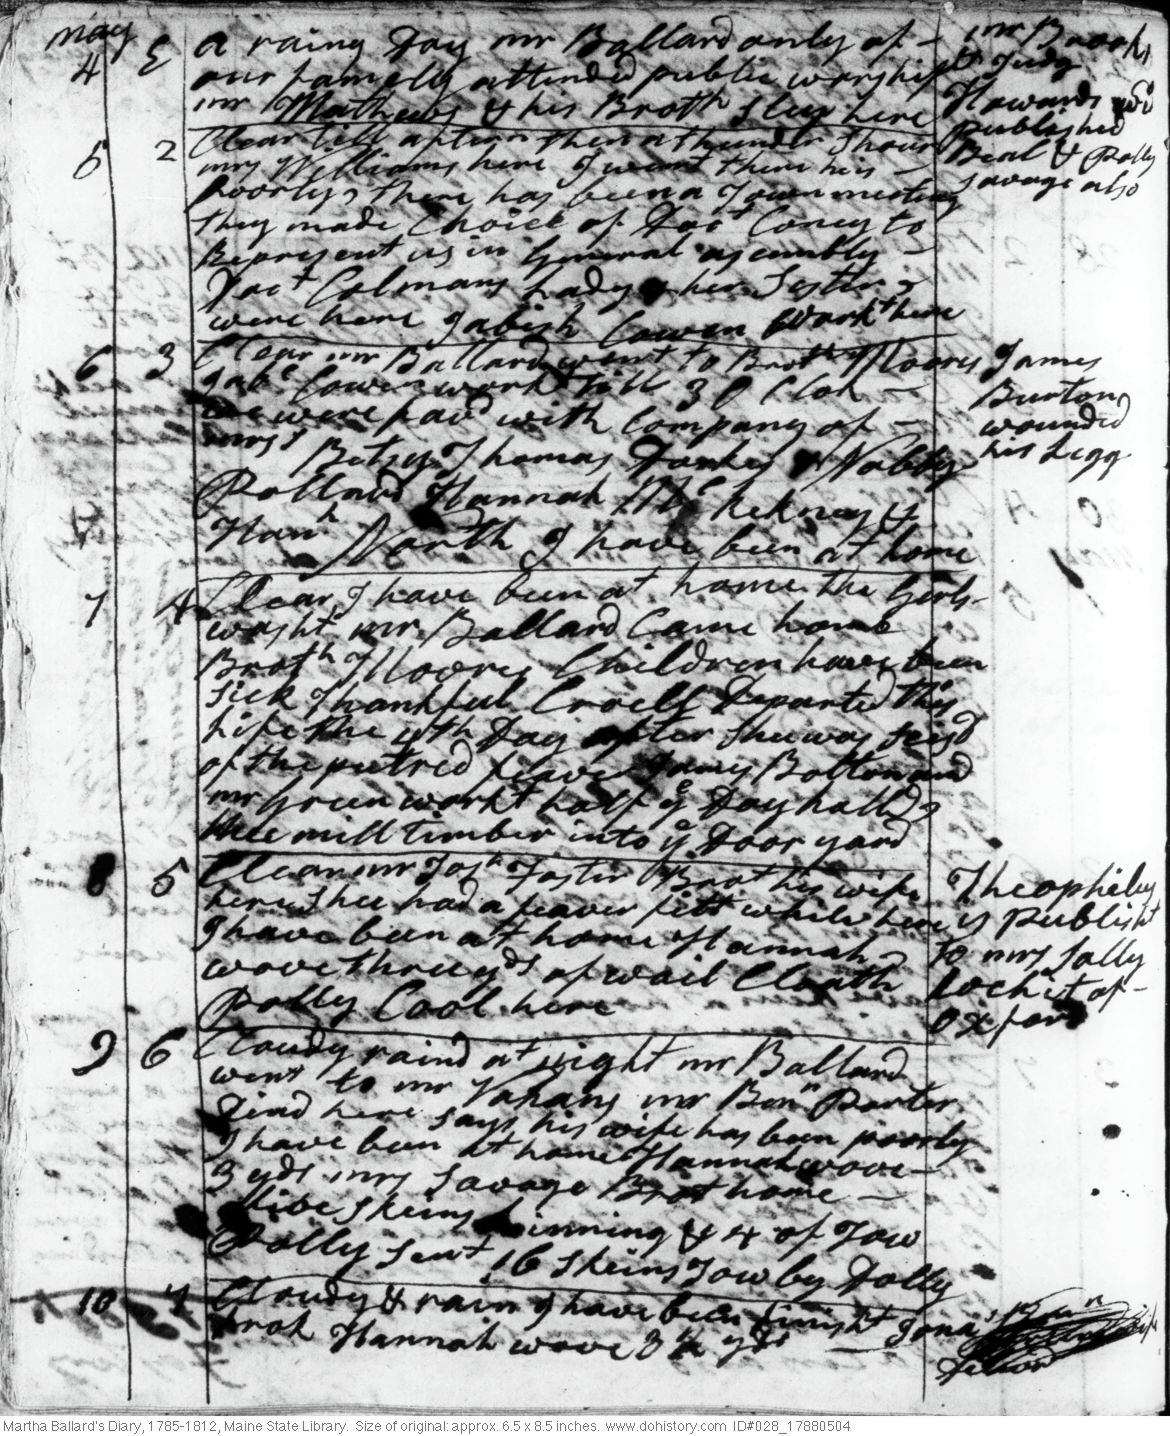 may
4 E a rainy Day mr Ballard only of
our famely attended public worship
mr Mathews & his Broth sleep here
mr Brooks
& Judg
Howards
published
Beal & Polly
Savage also
5 2 Clear till aftern then a thunder Shour
mrs Williams here I went there he is
poorly, there has been a Town meeting
they made Choice of Doct Coney to
Represent us in General assembly
Doct Colmans Lady & her Sister
were here Jabish Cowen workt here
6 3 Clear mr Ballard went to Brothr Moores
Jabe Cowen workt till 3 O Clok
we were favd with Company of
mrss Betsy Thomas Dorkes & Nabby
Pollard Hannah Mc Kekney &
Hanh North I have been at home
James
Burton
wounded
his Legg
7 4 Clear I have been at home the Girls
washt mr Ballard Came home
Broth Moores Children have been
sick Thankful Croell Departed this
Life the 4th Day after shee was seisd
of the putred feaver James Bolton and
mr Green workt half ye Day halld
thee mill timber into ye Door yard
8 5 Clear mr Josh Foster Brot his wife
here shee had a feaver fett while here
I have been at home Hannah
wove three yds of wail Cloath
Polly Cool here
Theophelus
is publisht
to mrs Sally
Lochit of
oxford
9 6 Cloudy raind at night mr Ballard
went to mr Vahans mr Benn Porter
Dind here says his wife has been poorly
I have been at home Hannah wove
3 yds mrs Savage Brot home
five skeins Linning & 4 of Tow
Polly sent 16 skeins Tow by Dolly
10 7 Cloudy & rain I have been finisht Jona
frok Hannah wove 3 1/2 yds
Martha Ballard's Diary, 1785-1812, Maine State Library. Size of original: approx. 6.5 x 8.5 inches. www.dohistory.com ID#028_17880504